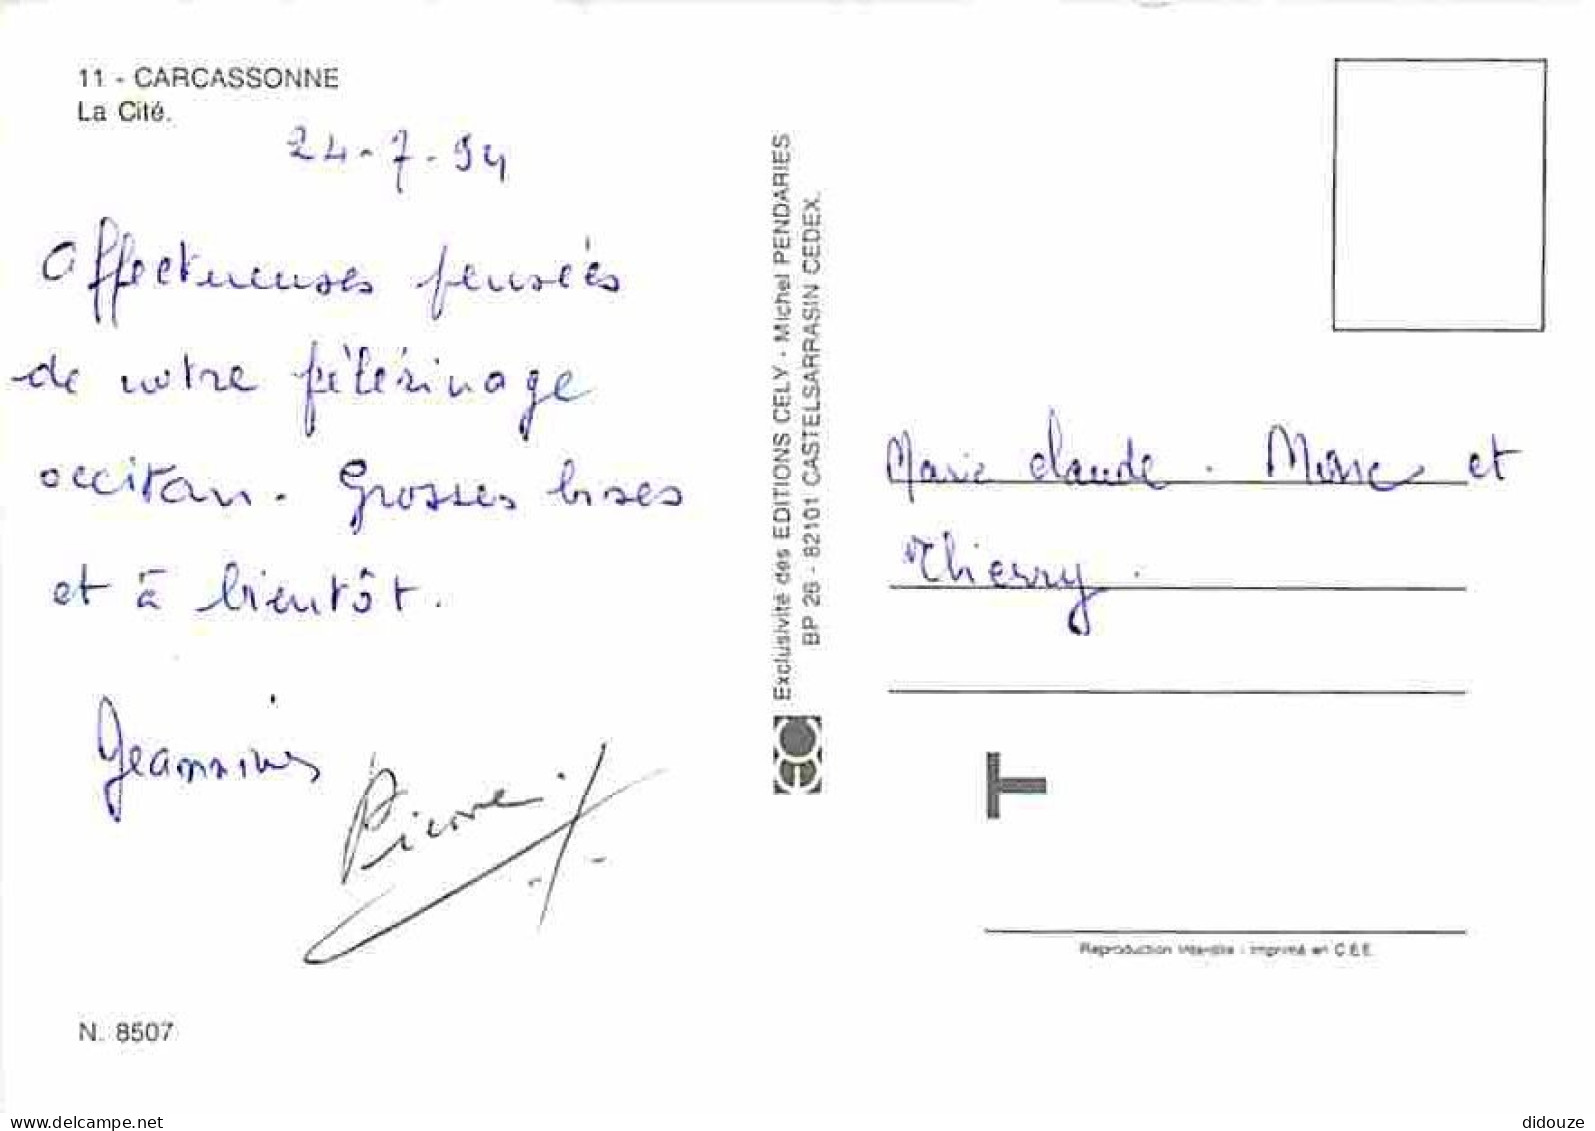 11 - CARCASSONNE
La Cité.
24-7-94
Affectueuses pensées
de notre pélérinage
occitan. Grosses bises
et à bientôt.
Jeannine
Pierre
N. 8507
Exclusivité des EDITIONS CELY - Michel PENDARIES
BP 26 - 82101 CASTELSARRASIN CEDEX.
Marie claude. et
Thierry.
Reproduction interdite - Imprimé en C.E.E.
delcampe.net
didouze